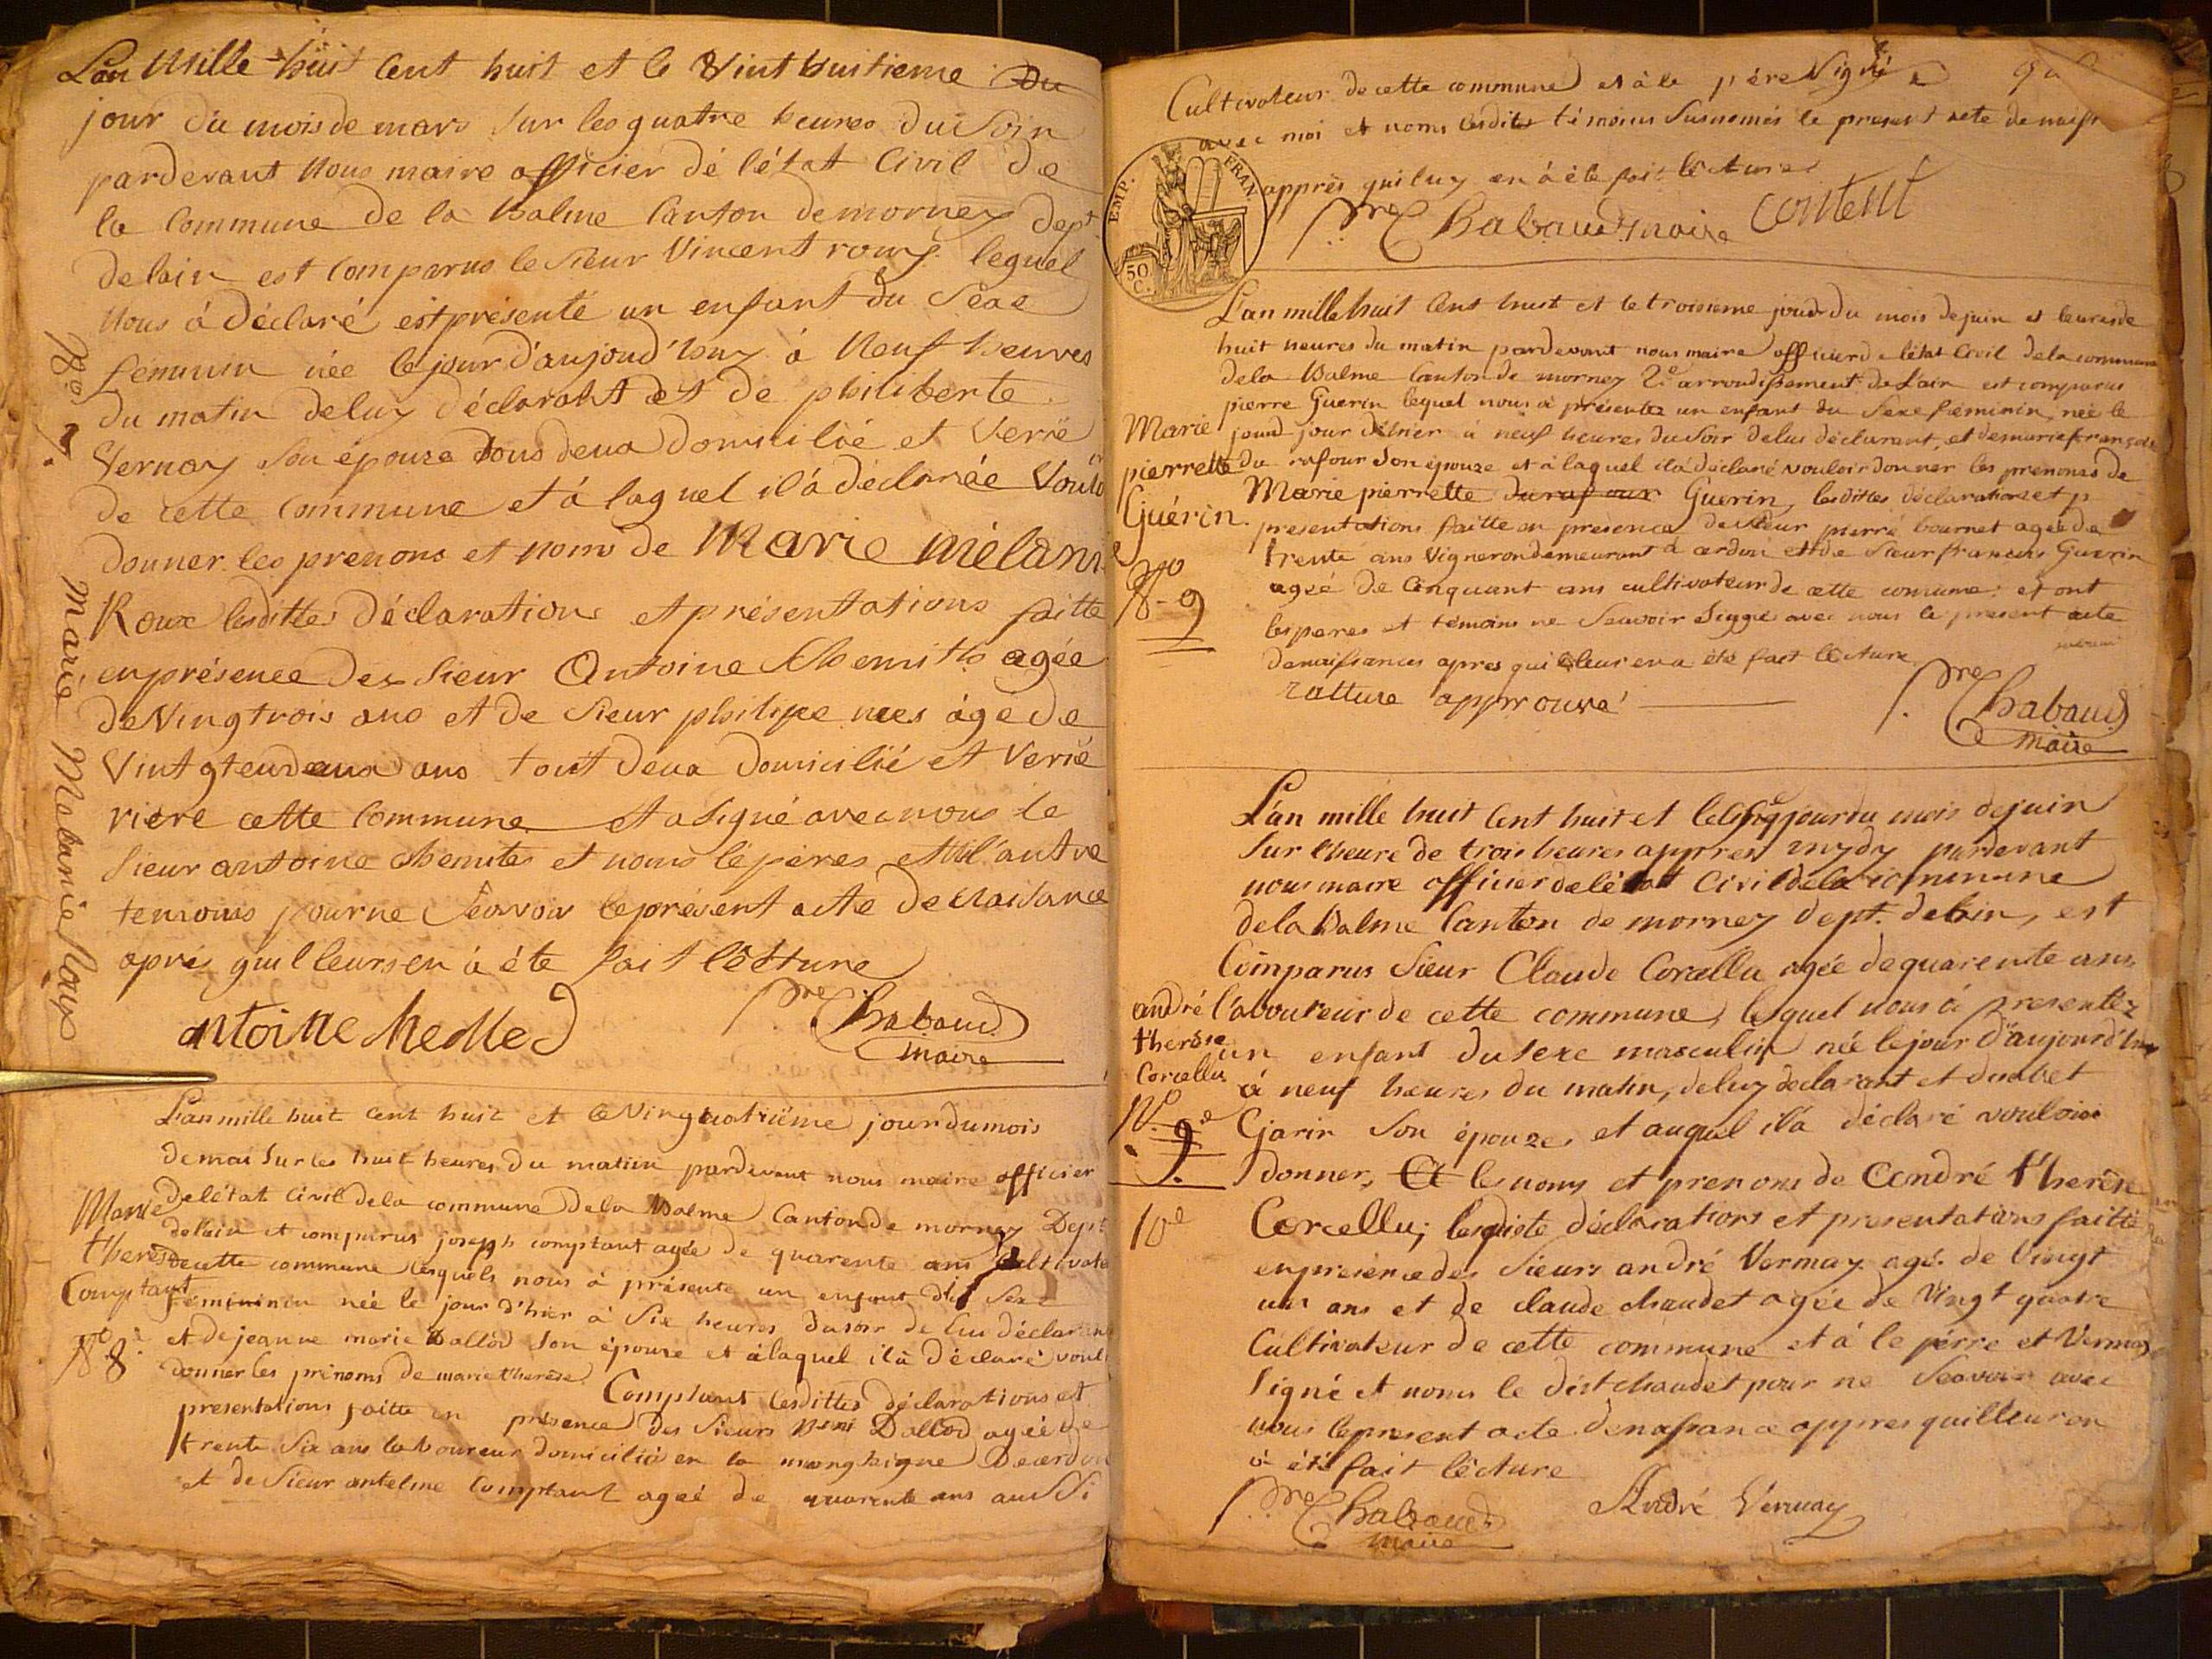 L'an Mille huit Cent huit et le Vint huitieme Du
jour du mois de mars sur les quatre heures du Soir
pardevant Nous maire officier dé l'état Civil de
la Commune de la Balme Canton de mornex dept
delain est Comparus le Sieur Vincent roux lequel
Nous à Déclaré et présenté un enfant du Sexe
féminin née le jour d'aujoud'huy à Neuf heures
du matin deluy déclarant et de philiberte
Vernay son épouze tous deux Domicilié et
de cette Commune et à laquel il à déclarée
donner les prenons et nom de Marie mélanie
Roux lesdittes Déclarations et présentations faitte
en présence des Sieur Antoine agée
de Vingtrois ans et de Sieur philipe âge de
ans tout deux Domicilié et
riere cette Commune et a Signé avec nous le
Sieur antoine et nom le pères et l'autre
temoins pour ne Seavoir le présent acte de Naisance
aprés quil leurs en à éte fait lécture
antoine
Pre Chabaud
maire
No 7.
Marie Melanie Roux
L'an mille huit cent huit et le Vingquatriéme jour du mois
de mai Sur les huit heures du matin pardevant nous maire officier
de l'état Civil dela commune dela Balme Canton de mornay Dept
delain et comparus joseph comptant agée de quarente ans Cultivate
decette commune lesquels nous à présente un enfant du Sexe
féminin née le jour d'hier à Six heures dusoir de lui déclarant
et de jeanne marie Dallod Son épouze et àlaquel il à Déclaré voul
donner les prénoms de marie therése Comptant lesdittes déclarations et
presentations faitte en présence des Sieurs Dallod agée de
trente Six ans laboureur domicilié en la Decerdon
et de Sieur antelme Comptant ageé de quarente ans aussi
Marie
therese
Comptant
No 8e
Cultivateur de cette commune et à le pére Signé
avec moi et noms lesdits témoins Susnomés le present acte de naiss
apprés quiluy en à éte fait lécture
Pre Chabaud maire content
EMP. FRAN.
50 C.
L'an mille huit Cent huit et le troisieme jour du mois de juin et heures de
huit heures du matin pardevant nous maire officier de létat Civil dela commune
dela Balme Canton de mornez 2e arrondissement de L'ain est comparus
pierre Guerin lequel nous à présentez un enfant du Sexe féminin, née le
jour d'hier à neuf heures du Soir delui déclarant, et demarie françoise
du rafour Son épouze et à laquel il à déclaré vouloir donner les prenoms de
Marie pierrette durafour Guerin, lesdittes déclarations et p
presentations faitte en presence de sieur pierre bournet ageé de
trente ans Vigneron demeurant à cerdon et de Sieur francois Guerin
ageé de Cinquant ans cultivateur de cette comune; et ont
les peres et témoins ne Seavoir Signé avec nous le present acte
denaissances apres qui leur en a été fait lécture
ratture approuvé
Pre Chabaud
maire
Marie
pierrette
Guérin.
No 9
L'an mille huit Cent huit et le jour du mois de juin
Sur l'heure de trois heures appres mydy pardevant
nous maire officier de létat Civil dela commune
dela Balme Canton de mornez dept. delain, est
Comparus Sieur Claude Corcellu agée de quarente ans
l'aboureur de cette commune, lesquel nous à presentez
un enfant du Sexe masculin née le jour d'aujourd'huy
à neuf heures du matin, deluy declarant et
Gjarin Son épouze, et auquel il à déclaré vouloir
donner, et les noms et prenoms de André therése
Corcellu; lesdiste déclarations et presentations faitte
en presence des Sieurs andré Vernay agé de Vingt
un ans et de claude chaudet agée de Vingt quatre
Cultivateur de cette commune et à le pérre et Vernay
Signé et nom le dist chaudet pour ne Seavoir avec
nous le present acte denassance appres quilleur en
à été fait lécture
Pre Chabaud
maire
André Vernay
andré
therése
Corcellu
No 9e
9.
10e